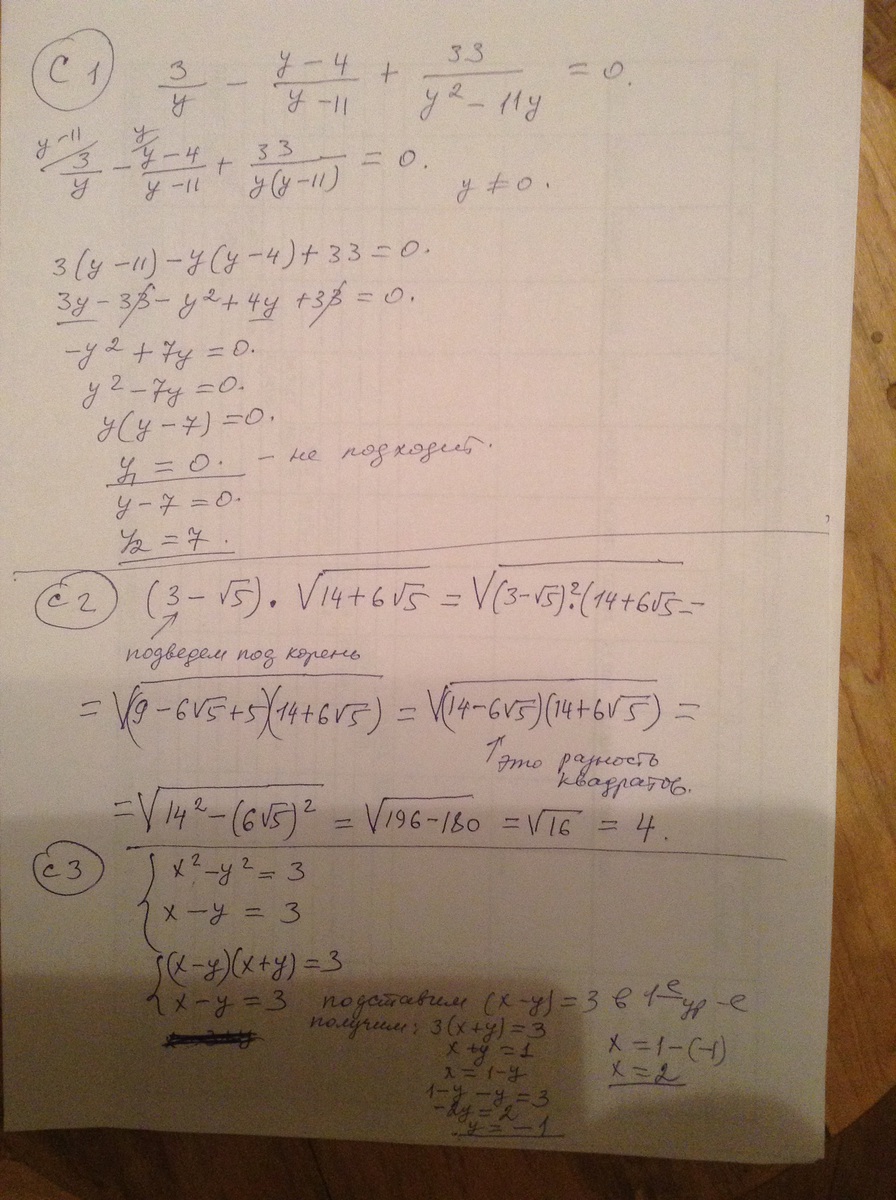 С 1 3/y - (y-4)/(y-11) + 33/(y² - 11y) = 0.
y-11/ 3/y - y/ (y-4)/(y-11) + 33/(y(y-11)) = 0.
y ≠ 0.
3(y-11) - y(y-4) + 33 = 0.
3y - 33 - y² + 4y + 33 = 0.
-y² + 7y = 0.
y² - 7y = 0.
y(y-7) = 0.
y₁ = 0. - не подходит.
y - 7 = 0.
y₂ = 7.
С 2 (3 - √5) · √(14+6√5) = √((3-√5)²·(14+6√5 =
подведем под корень
= √((9-6√5+5)(14+6√5)) = √((14-6√5)(14+6√5)) =
это разность
квадратов.
= √(14² - (6√5)²) = √(196-180) = √16 = 4.
С 3 { x² - y² = 3
x - y = 3
{ (x-y)(x+y) = 3
x - y = 3 подставим (x-y) = 3 в 1-е ур-е
получим: 3(x+y) = 3
x+y = 1
x = 1-y
1-y-y = 3
-2y = 2
y = -1
x = 1-(-1)
x = 2